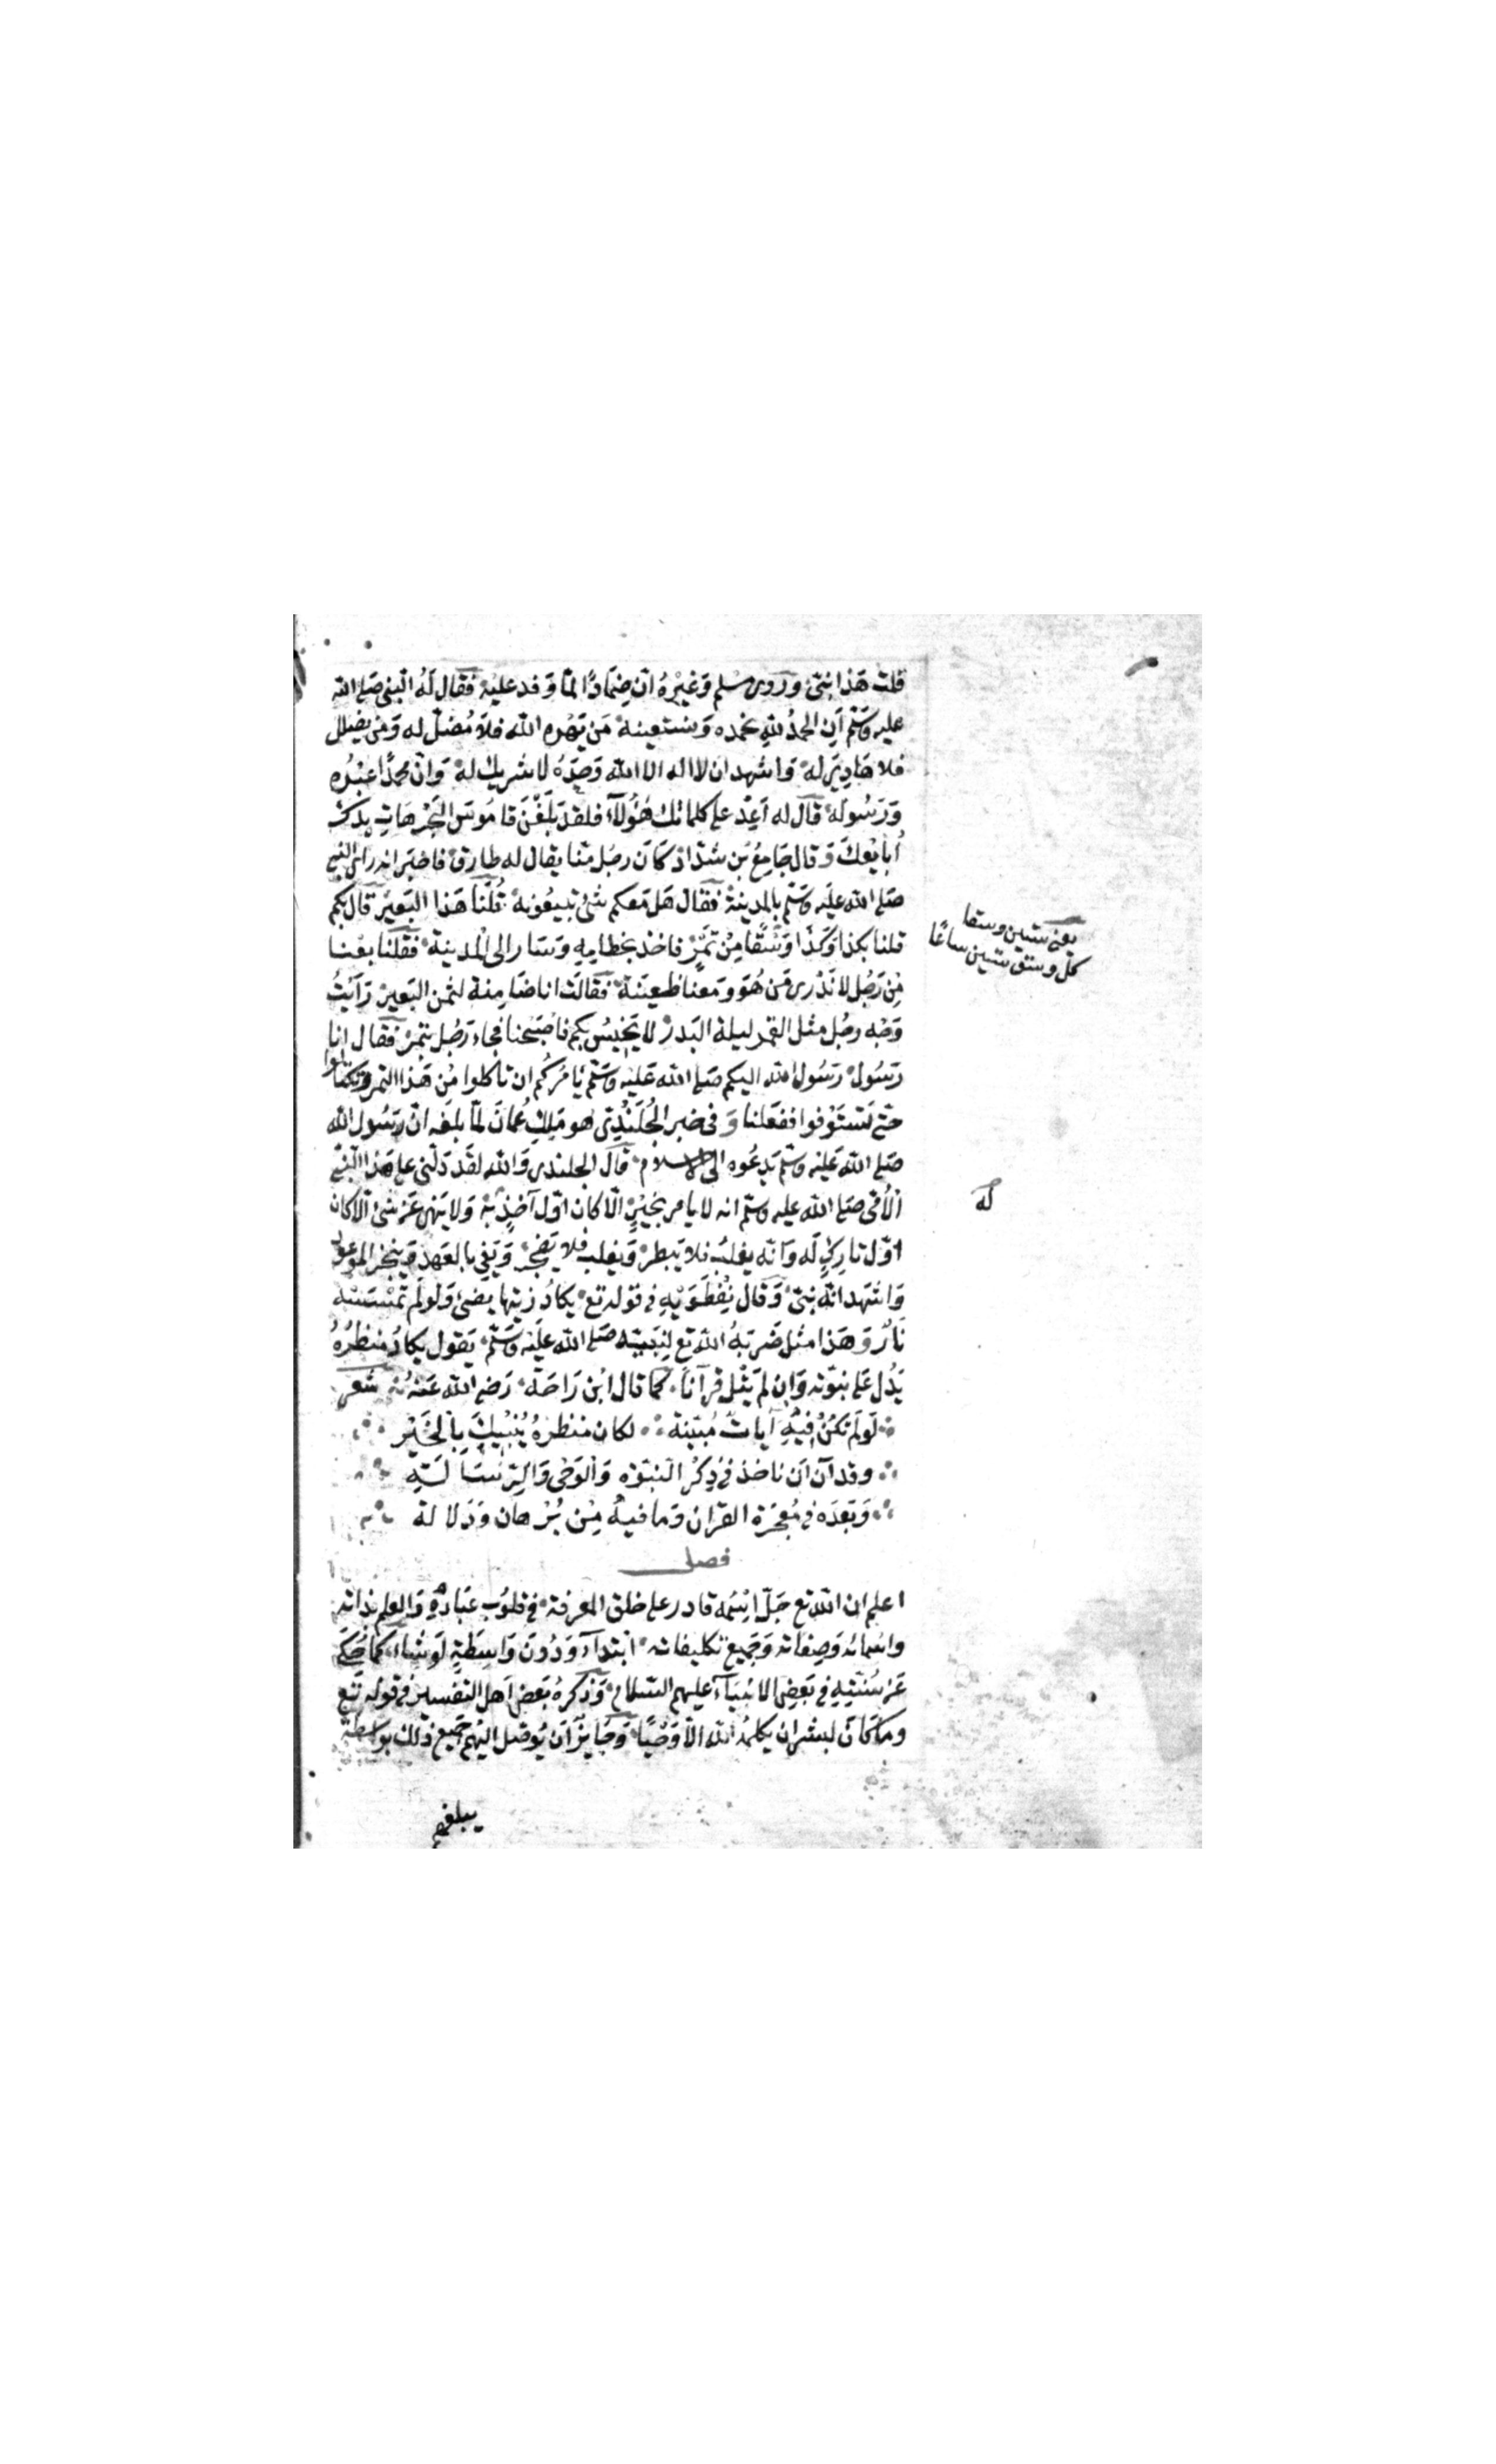 قلت هَذا نبيّ وَرَوى مسْلم وَغيْرهُ انّ ضِمَادًا لمّا وَفد عليْه فقَال لَهُ النّبي صَلى الله
عليه وَسَلّم اَن الحمدُ للهِ نحمده وَنستعينه مَن يَهْدهِ الله فلاَ مُضلّ له وَمن يضلل
فلا هَادِيَ له وَاشهد ان لا اله الا الله وَحدَهُ لا شريك له وَانّ محمدًا عبْدُه
وَرَسُوله قال له اَعِدْ على كلماتك هؤُلآء فلقد بَلَغْنَ قامُوسَ البَحْر هَاتِ يدك
اُبايعْكَ وَقال جَامِعُ بْن شدّاد كَانَ رجُل منّا يقال له طارق فاخبر انه راى النبي
صَلى الله عليه وَسَلّم بالمدينة فقال هَل مَعكم شئ تبيعُونه قُلنَا هَذا البَعير قال بكم
قلنا بكذا وَكَذَا وَسْقًا مِنْ تمْر فاخذ بخطامِهِ وَسَار الى المدينة فقلنا بعْنا
مِن رَجُل لا نَدْرى مَن هُوَ وَمَعنا ظعِينَة فقالَت انا ضَامِنة لثمن البَعير رَأيْتُ
وَجْه رجُل مثل القمر ليلة البَدر لا يَخِيسُ بكم فاَصْبَحنا فجاء رَجُل بتمْر فقال انا
رَسُول رَسُول الله اليكم صَلى الله عَليْه وَسَلّم يَامُركُم ان تاكلوا مِن هَذا التمر وتكتالوا
حَتى تَسْتَوْفوا ففعَلنا وَفى خبر الجُلَنْدِى هُو مَلِكِ عُمانَ لمّا بلغَه انّ رَسُول الله
صَلى الله عَليْه وَسَلّم يَدعُوه الى الاسلام قَالَ الجلندى وَالله لقَد دَلّنى على هَذا النّبي
الاُمّي صَلى الله عليه وَسَلّم انه لا يامر بخيْرٍ الّا كان اوّل آخذٍ بهْ وَلا يَنهى عَن شئ الّا كان
اوّل تاركٍ لَه وَانّه يغلبُ فلا يَبطر وَيغلب فلا يَضجر وَيَفي بالعَهد وَينجز الموعود
وَاشهد انّه نبيّ وَقال نِفْطَوَيْهِ في قوله تع يكادُ زيتها يَضئ وَلو لَم تمْسَسْه
نَارٌ وَهَذا مثل ضَربَهُ الله تع لِنَبيّه صَلى الله عليْه وَسَلّم يَقول يكادُ منظرُهُ
يَدُل على نبوّته وَان لم يَتْل قرآناً كما قال ابْن رَاحَة رَضي الله عَنْهُ شعر
لَو لَم تكُنْ فيْهِ آيات مُبيّنة لكان منظرهُ يُنْبيْكَ بِالخَيْر
وقد آن اَن ناخذ في ذِكْر النّبوّه وَالوَحْى وَالرّسَا لَـةِ
وَبَعدَه في مُعجَزة القرَان وَما فيهُ مِنْ بُرْهان وَدَلا لة
فصل
اعلم ان الله تع جَلّ اسْمُه قادر على خلق المعرفة في قلوُب عبَادهِ وَالعِلم بذاته
واسْمائه وَصِفاته وَجَميع تكليفاته ابْتداً وَدُونَ وَاسِطَةٍ لَو شاء كما حُكِيَ
عَن سُنّتِهِ في بَعضِ الانبيَآء عليهم السّلام وَذكرهُ بَعض اَهل التفسير في قوله تع
وما كَانَ لبشر ان يكلمهُ الله الاّ وَحْيًا وَجَايز اَن يُوصَل اليهم جَميع ذلك بواسطة
يبلغهم
يعني ستين وسقا
كل وسق ستين صاعًا
له